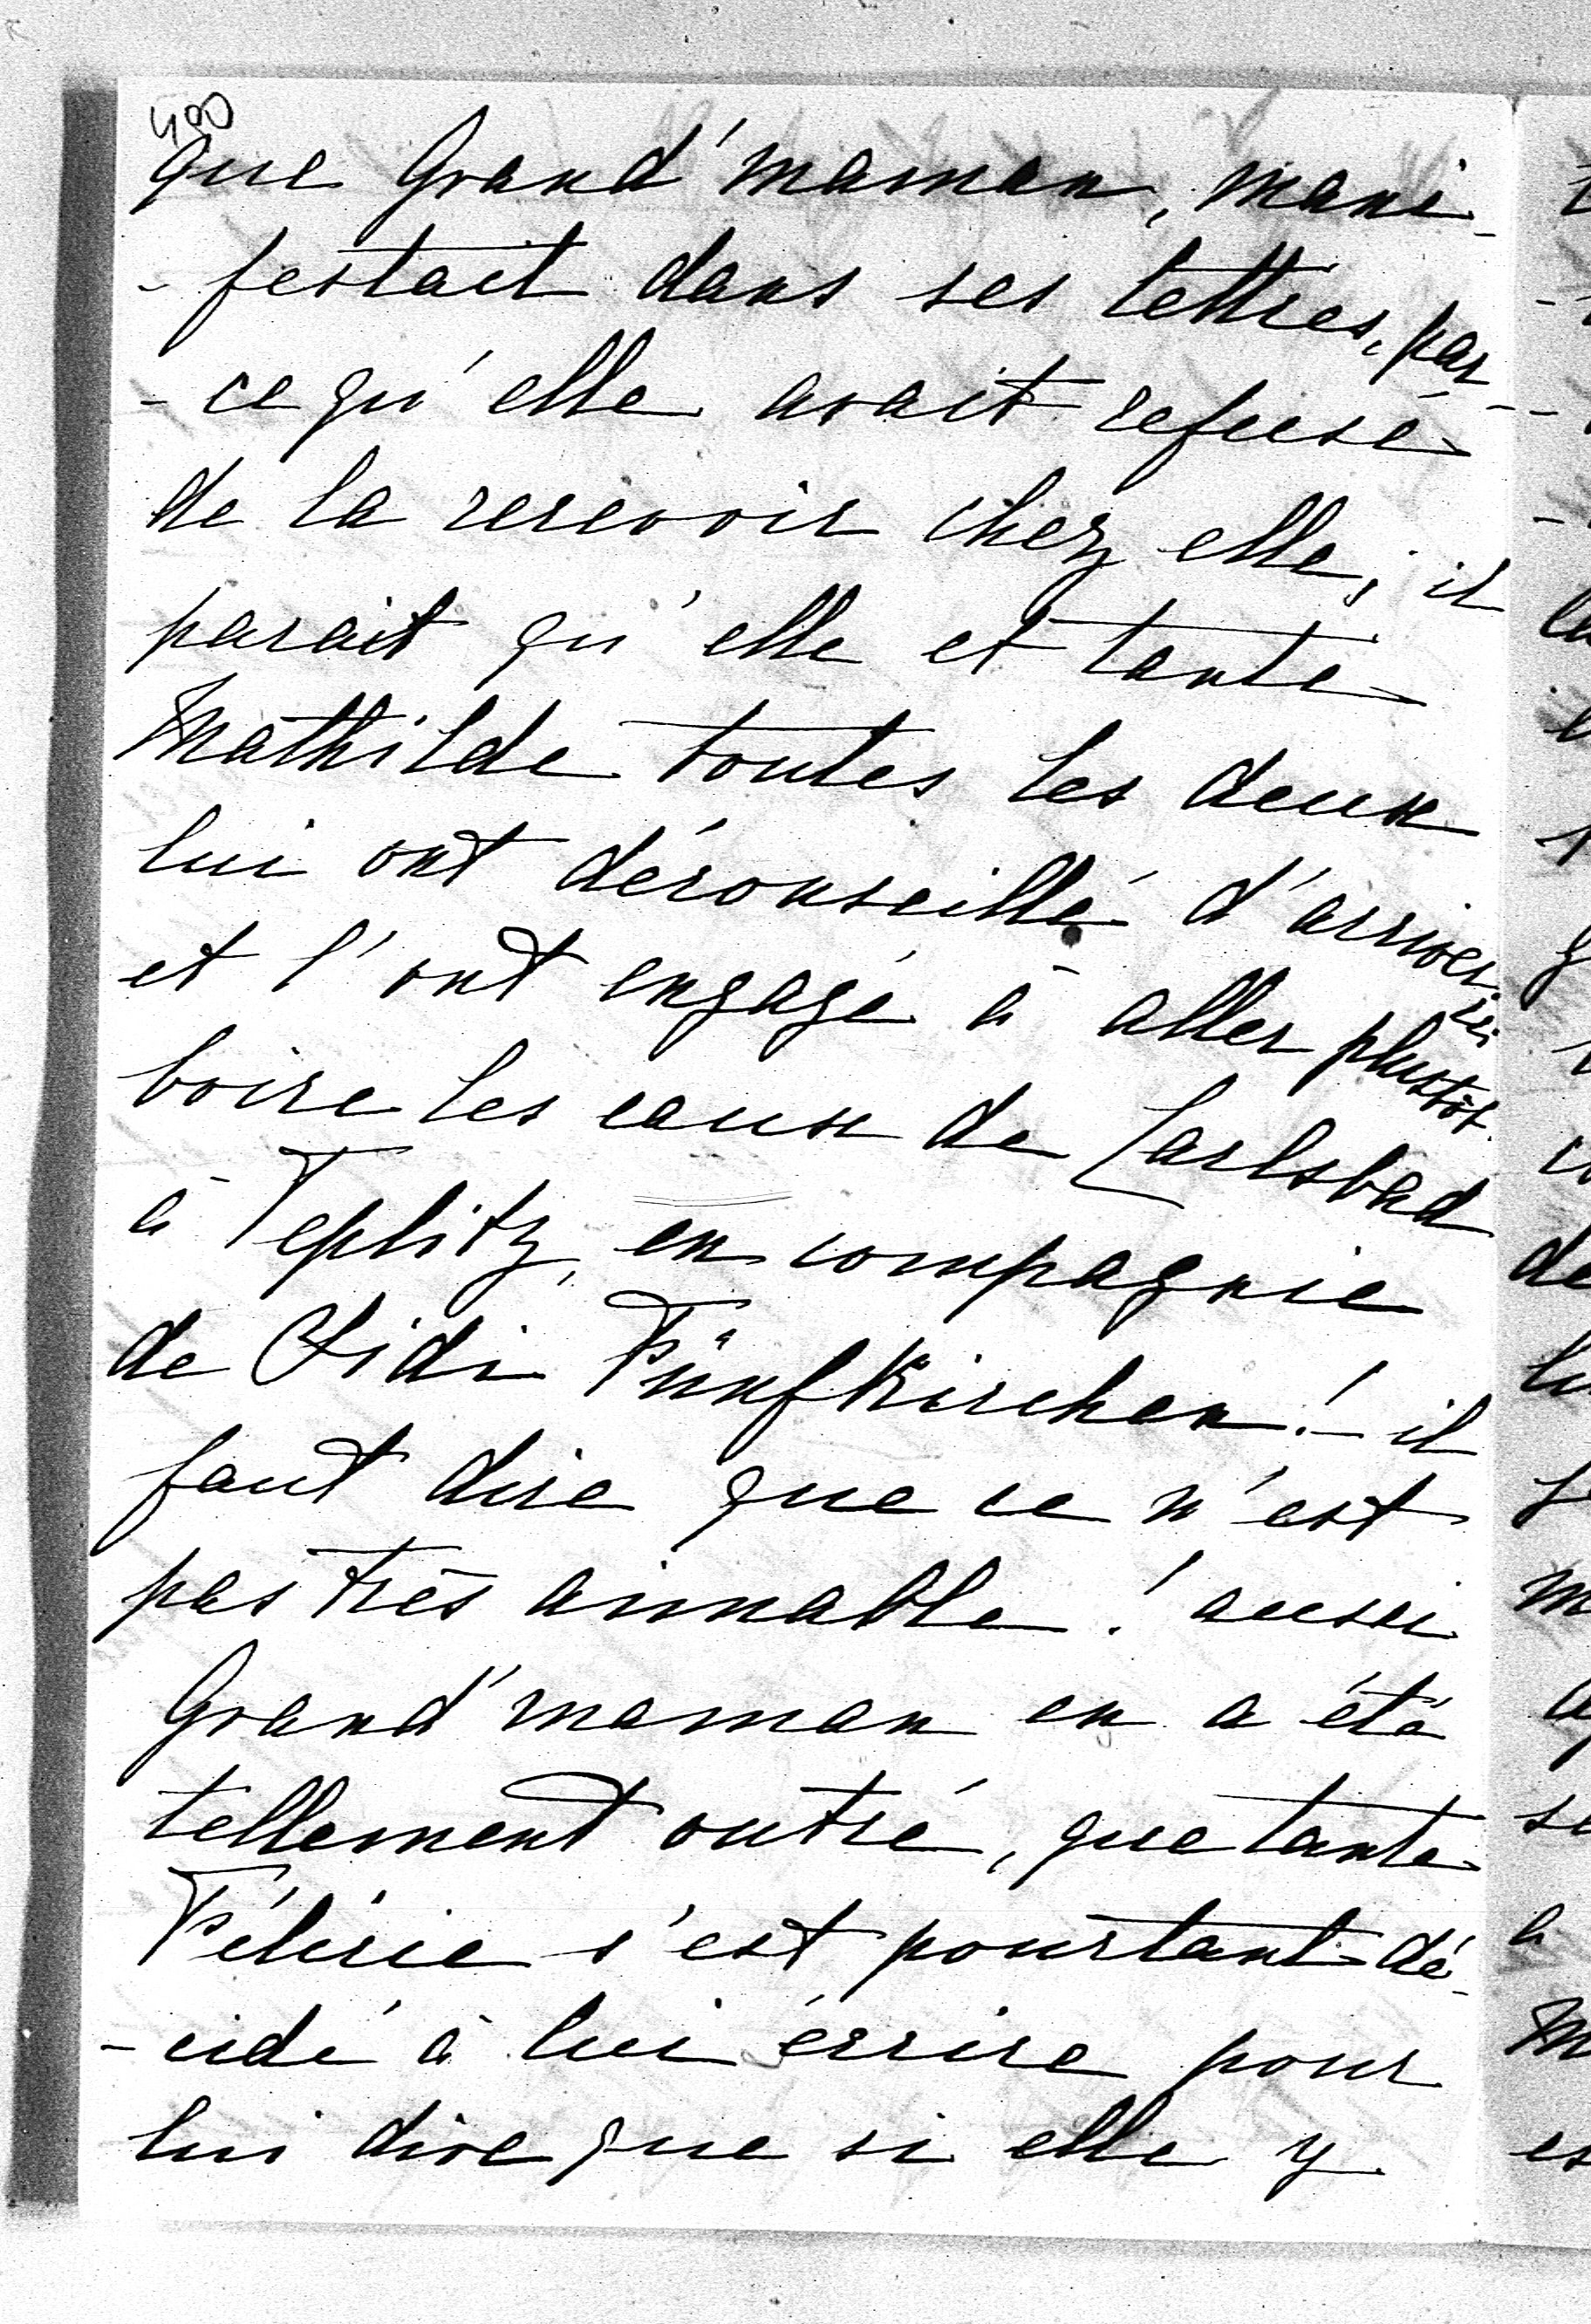 400
que Grand'maman, mani-
-festait dans ses lettres, par-
-ce qu'elle avait refusé
de la recevoir chez elle; il
parait qu'elle et tante
Mathilde toutes les deux
lui ont déconseillé d'arriver ici
et l'ont engagé à aller plustôt
boire les eaux de Carlsbad
à Teplitz, en compagnie
de Sidi Fünfkirchen! - il
faut dire que ce n'est
pas très aimable! aussi
Grand'maman en a été
tellement outré, que tante
Félicie s'est pourtant dé-
-cidé à lui écrire pour
lui dire que si elle y